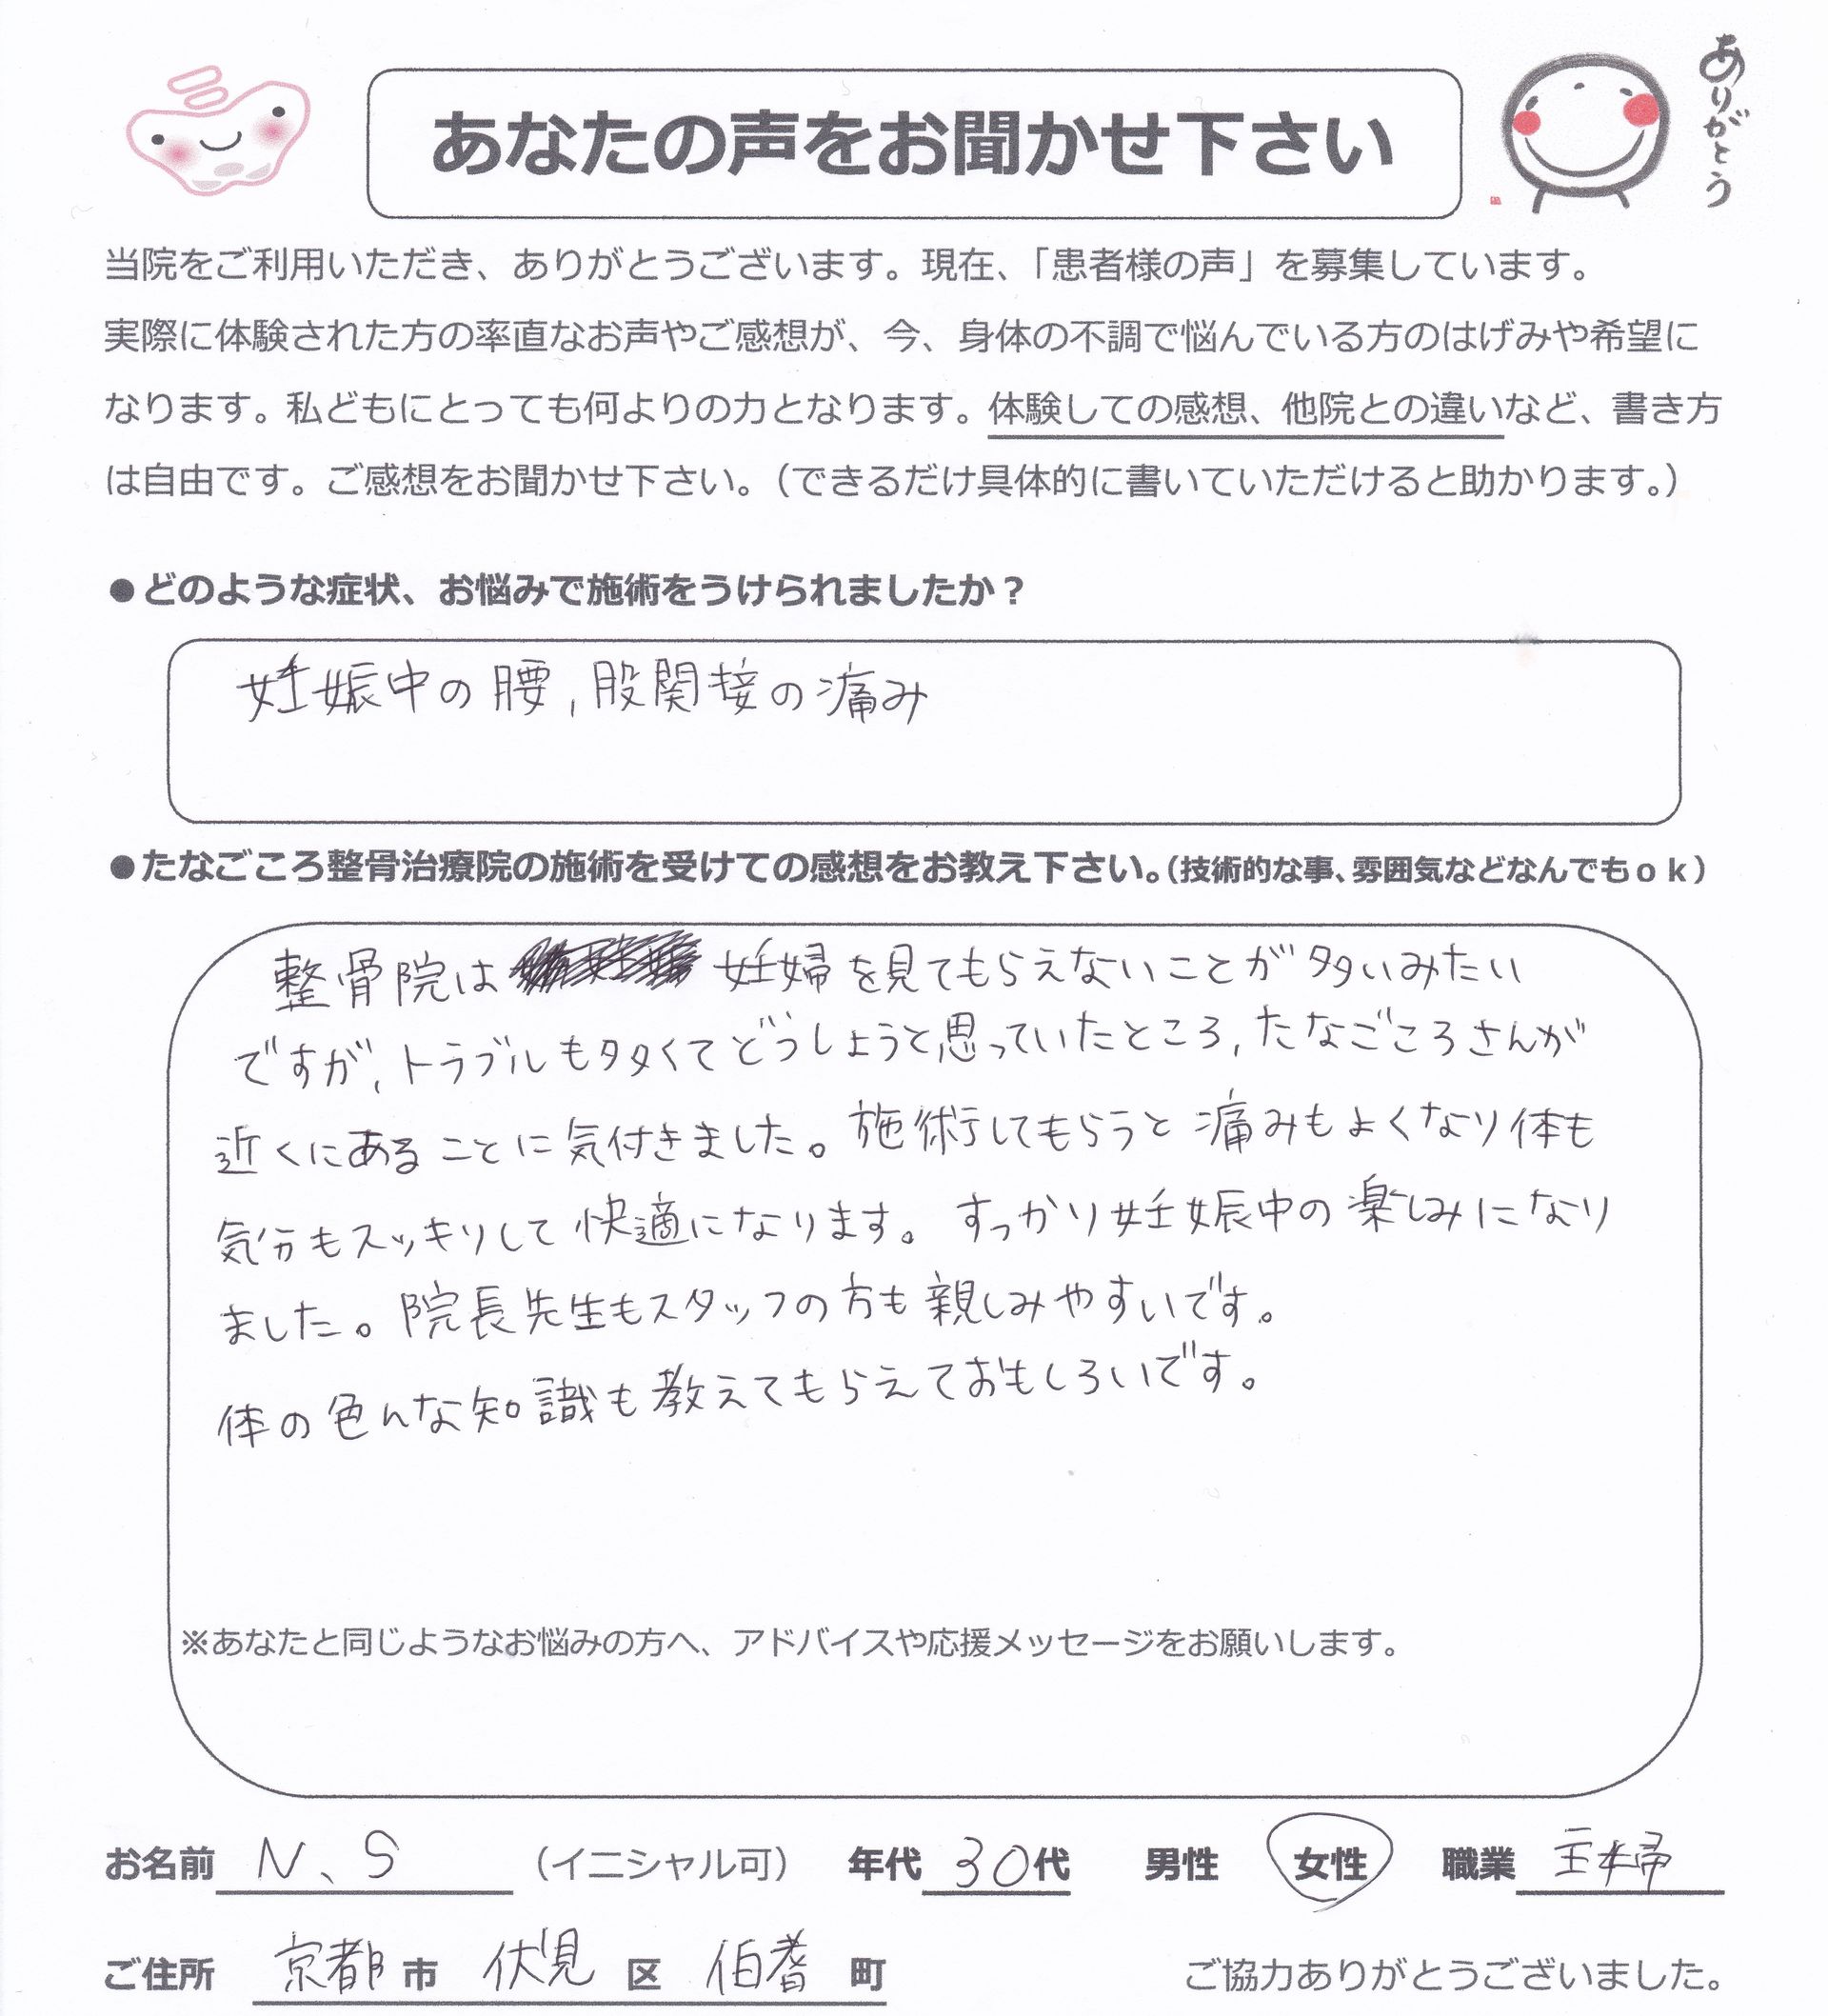 あなたの声をお聞かせ下さい
ありがとう
当院をご利用いただき、ありがとうございます。現在、「患者様の声」を募集しています。
実際に体験された方の率直なお声やご感想が、今、身体の不調で悩んでいる方のはげみや希望に
なります。私どもにとっても何よりの力となります。体験しての感想、他院との違いなど、書き方
は自由です。ご感想をお聞かせ下さい。（できるだけ具体的に書いていただけると助かります。）
●どのような症状、お悩みで施術をうけられましたか？
妊娠中の腰，股関接の痛み
●たなごころ整骨治療院の施術を受けての感想をお教え下さい。（技術的な事、雰囲気などなんでもｏｋ）
整骨院は 妊婦を見てもらえないことが多いみたい
ですが，トラブルも多くてどうしようと思っていたところ，たなごころさんが
近くにあることに気付きました。施術してもらうと痛みもよくなり体も
気分もスッキリして快適になります。すっかり妊娠中の楽しみになり
ました。院長先生もスタッフの方も親しみやすいです。
体の色んな知識も教えてもらえておもしろいです。
※あなたと同じようなお悩みの方へ、アドバイスや応援メッセージをお願いします。
お名前 N、S （イニシャル可） 年代 30代 男性 女性 職業 主婦
ご住所 京都市 伏見区 伯耆町 ご協力ありがとうございました。